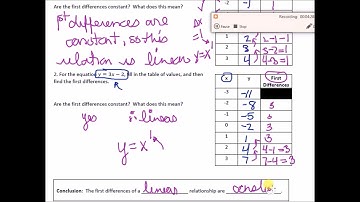 Are the first differences constant? What does this mean?
1st differences are
constant, so this
relation is linear
Δx
= 1
y=x
1 2 2-1=1
2 3 3-2=1
3 4 4-3=1
2. For the equation y = 3x - 2, fill in the table of values, and then
find the first differences.
Are the first differences constant? What does this mean?
yes is linear
y=x¹
x y First
Differences
-3 -11
-2 -8 3
-1 -5 3
0 -2 3
1 1 3
2 4 4-1=3
3 7 7-4=3
Conclusion: The first differences of a linear relationship are
Recording